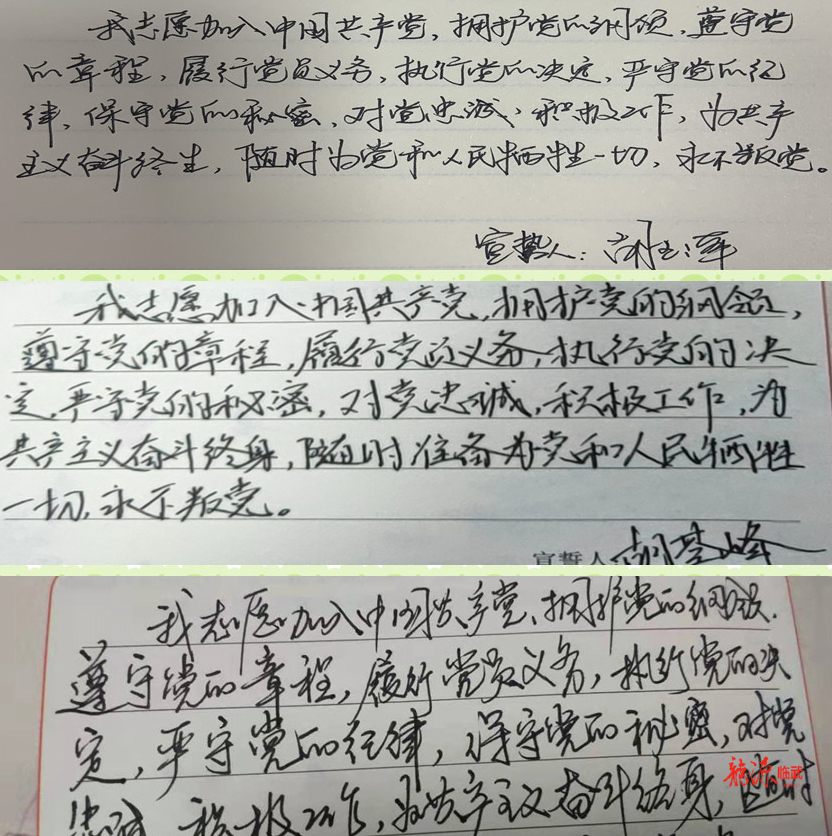 我志愿加入中国共产党，拥护党的纲领，遵守党
的章程，履行党员义务，执行党的决定，严守党的纪
律，保守党的秘密，对党忠诚，积极工作，为共产
主义奋斗终生，随时为党和人民牺牲一切，永不叛党。
宣誓人：
我志愿加入中国共产党，拥护党的纲领，
遵守党的章程，履行党的义务，执行党的决
定，严守党的秘密，对党忠诚，积极工作，为
共产主义奋斗终身，随时准备为党和人民牺牲
一切，永不叛党。
宣誓人
我志愿加入中国共产党，拥护党的纲领.
遵守党的章程，履行党员义务，执行党的决
定，严守党的纪律，保守党的秘密，对党
忠诚，积极工作，为共产主义奋斗终身，随时
临武